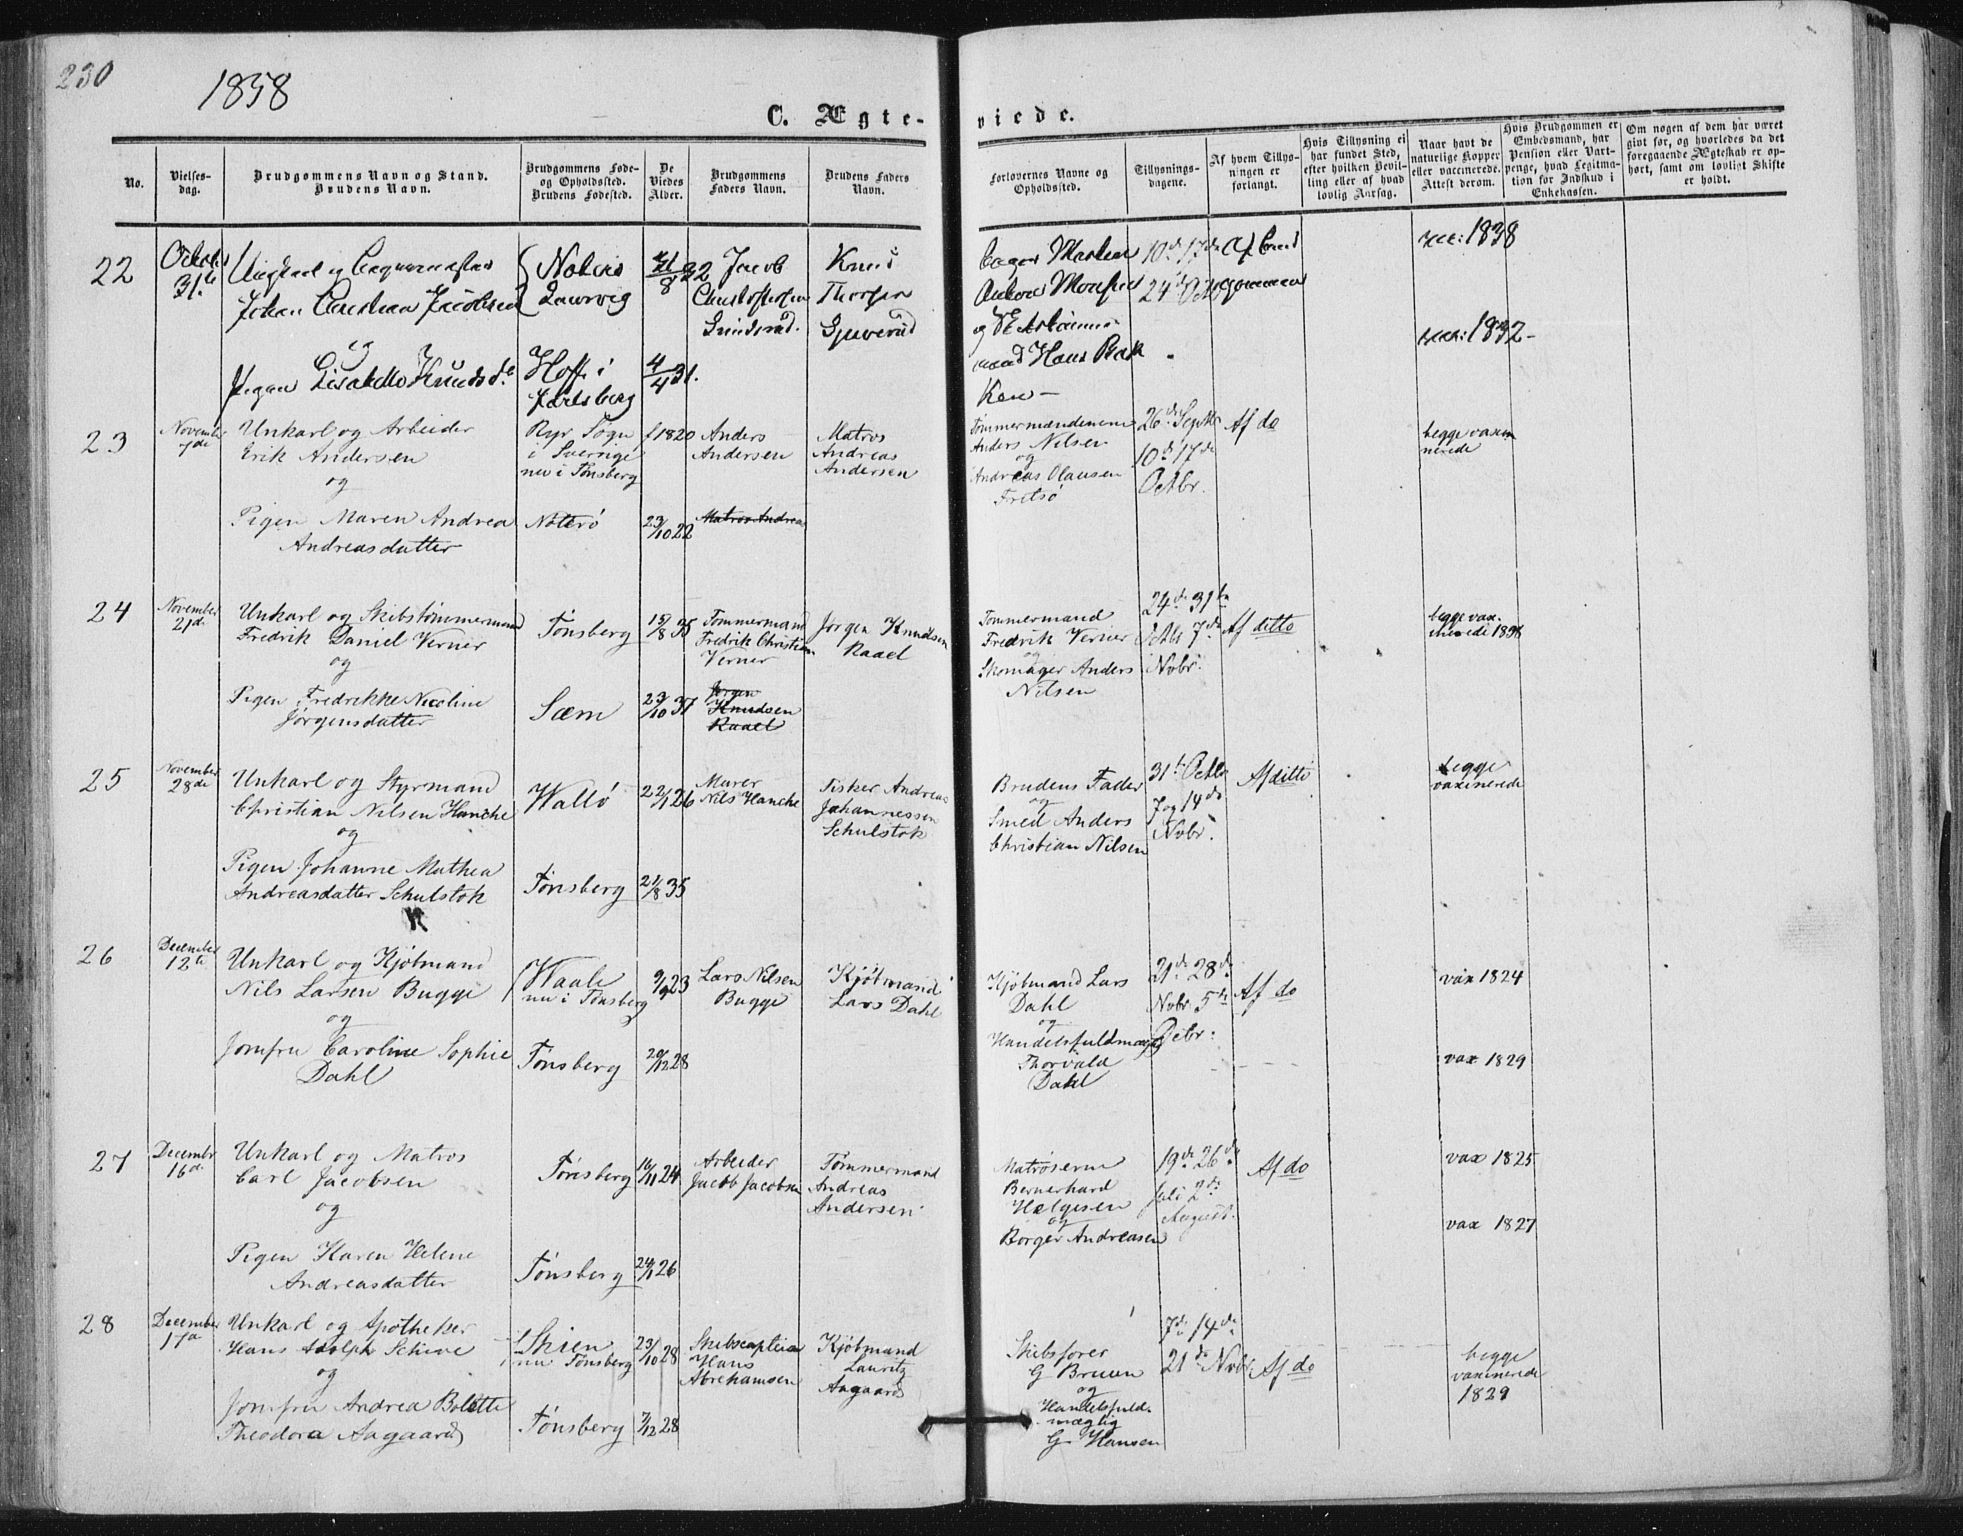 230
1858
C. Ægte-
viede.
No.
Vielses-
dag.
Brudgommens Navn og Stand.
Brudens Navn.
Brudgommens Føde-
og Opholdssted.
Brudens Fødested.
De
Viedes
Alder.
Brudgommens
Faders Navn.
Brudens Faders
Navn.
Forlovernes Navne og
Opholdssted.
Tillysnings-
dagene.
Af hvem Tillys-
ningen er
forlangt.
Hvis Tillysning ei
har fundet Sted,
efter hvilken Bevil-
ling eller af hvad
lovlig Aarsag.
Naar havt de
naturlige Kopper
eller vaccinerede.
Attest derom.
Hvis Brudgommen er
Embedsmand, har
Pension eller Vart-
penge, hvad Legitima-
tion for Indskud i
Enkekassen.
Om nogen af dem har været
givt før, og hvorledes da det
foregaaende Ægteskab er op-
hørt, samt om lovligt Skifte
er holdt.
22
31te
Ungkarl og
Johan Christian Jacobsen
og
Pigen Lisabeth Knudsd.
Laurvig
Hoff i
Jarlsberg
8 32
4/4 31.
Jacob
Christophersen
Knud
Thorsen
10de 17de
24de Octbr
og
Hans
1838
1832
23
November
7de
Unkarl og Arbeider
Erik Andersen
og
Pigen Maren Andrea
Andreasdatter
Ryr Sogn
i Sverrige
nu i Tønsberg
Nøterø
f 1820
23/10 22
Anders
Andersen
Matros Andrea
Matros
Andreas
Andersen
Tømmermændenene
Anders Nilsen
og
Andreas Olausen
Fritsø
26de Septbr
10de 17de
Octbr.
Af do
begge vaxi
nerede
24
November
21de
Unkarl og Skibstømmermand
Fredrik Daniel Verner
og
Pigen Fredrikke Nicoline
Jørgensdatter
Tønsberg
Sæm
15/8 35
23/10 37
Tømmermand
Fredrik Christian
Verner
Jørgen
Knudsen
Raael
Jørgen Knudsen
Raael
Tømmermand
Fredrik Verner
og
Skomager Anders
Nilsen
24de 31te
Octbr 7de
Nvbr.
Af ditto
begge vax-
25
November
28de
Unkarl og Styrmand
Christian Nilsen Hanche
og
Pigen Johanne Mathea
Andreasdatter Schulstok
Wallø
Tønsberg
22/1 26
21/8 35
Murer
Nils Hanche
Fisker Andreas
Johannessen
Schulstok
Brudens Fader
og
Smed Anders
Christian Nilsen
31te Octbr
7 og 14de
Nvbr.
Af ditto
begge
vaxinerede
26
December
12te
Unkarl og Kjøbmand
Nils Larsen Bugge
og
Jomfru Caroline Sophie
Dahl
Waale
nu i Tønsberg
Tønsberg
9/9 23
20/12 28
Lars Nilsen
Bugge
Kjøbmand
Lars Dahl
Kjøbmand Lars
Dahl
og
Handelsfuldmægtig
Thorvald
Dahl
21de 28de
Nvbr 5te
Af do
vax 1824
vax 1829
27
Decembr
16de
Unkarl og Matros
Carl Jacobsen
og
Pigen Karen Helene
Andreasdatter
Tønsberg
Tønsberg
16/11 24
24/1 26
Arbeider
Jacob Jacobsen
Tømmermand
Andreas
Andersen
Matroserne
Bernerhard
Helgesen
og
Borger Andreasen
19de 26de
Juli 2de
August.
Af do
vax 1825
vax 1827
28
December
17de
Unkarl og Apotheker
Hans Adolph Schive
og
Jomfru Andrea Bolette
Theodora Aagaard
Skien
nu Tønsberg
Tønsberg
23/10 28
7/12 28
Skibscaptein
Hans
Abrehamsen
Kjøbmand
Lauritz
Aagaard
Skibsfører
G Bruun
og
Handelsfuld-
mægtig
G Hansen
7de 14de
21de Nvbr
Af do
begge
vaxinerede
1829